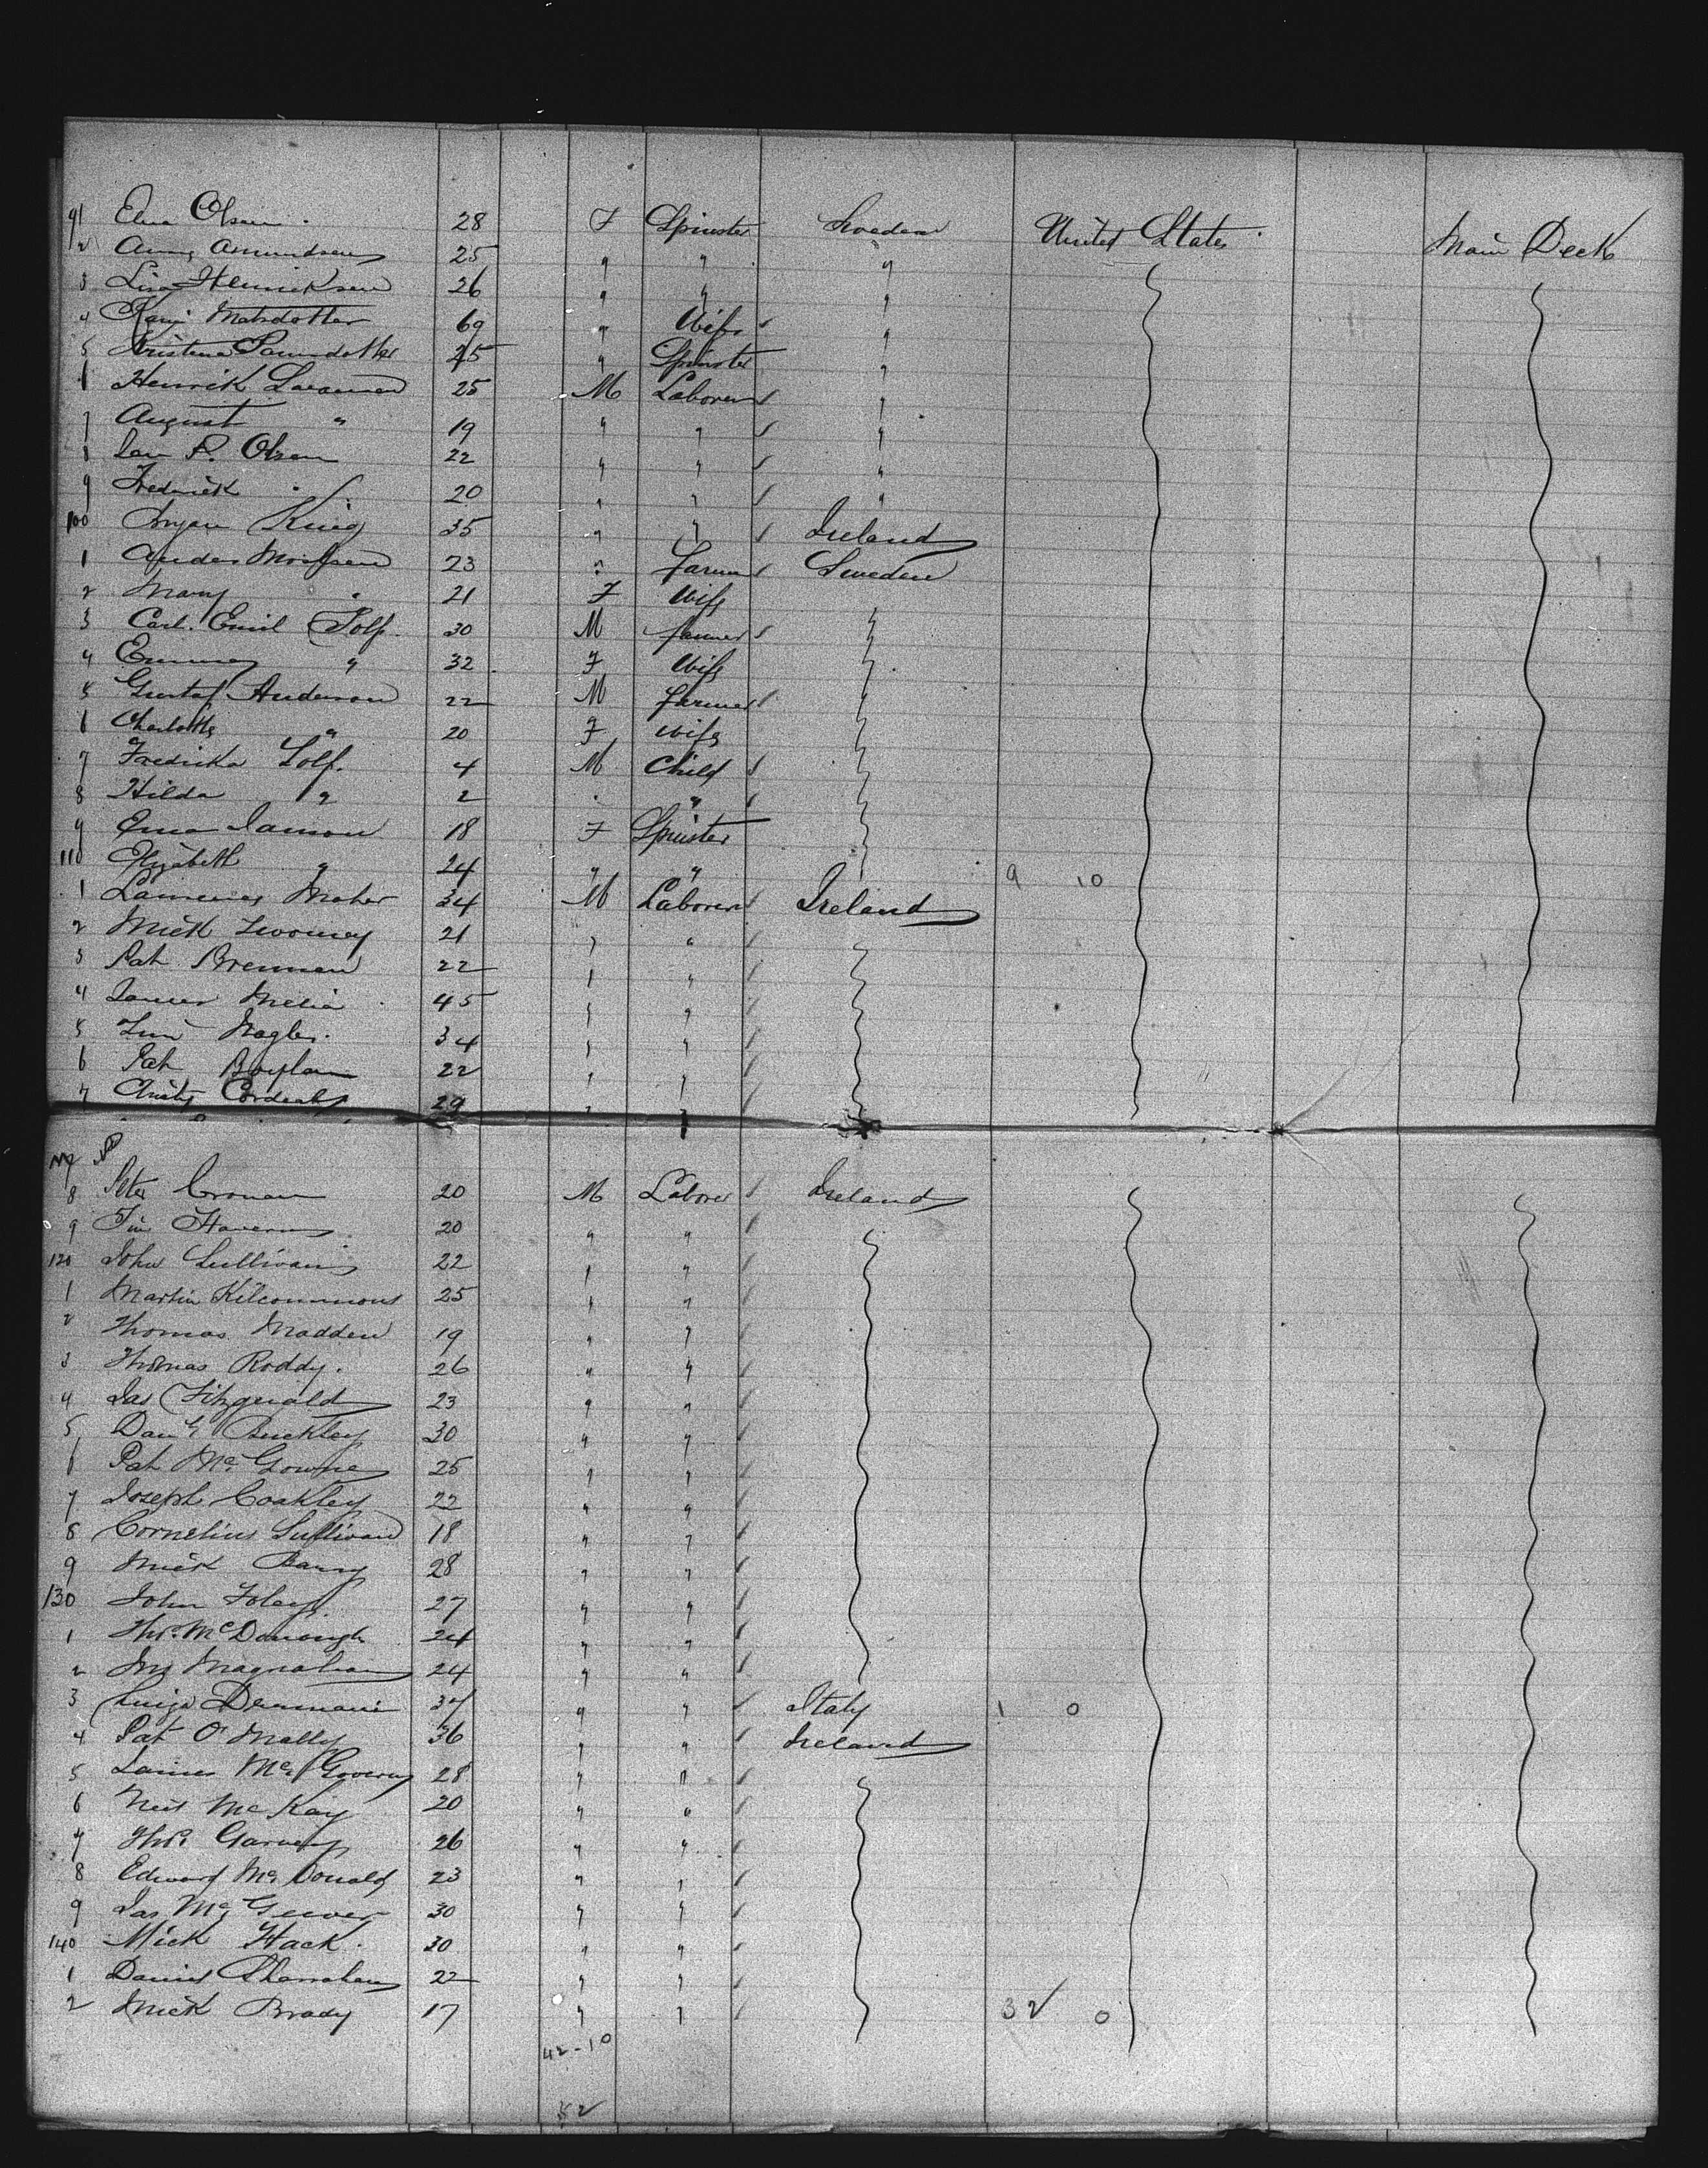 91 Elna Olsen 28 F Spinster Sweden United States Main Deck
2 Anna Amundsen 25 " " "
3 Lisa Henricksen 26 " " "
4 Matsdotter 69 " Wife "
5 Kristina 25 " Spinster "
Henrick 25 M Laborer "
7 August " 19 " " "
8 P. Olsen 22 " " "
9 Fredrick " 20 " " "
100 King 35 " " Ireland
1 Andes 23 " Farmer Sweden
2 Mary " 21 F Wife
3 Carl. Emil 30 M farmer
4 Emma " 32 F Wife
5 Gustaf Anderson 22 M Farmer
6 Charlotte " 20 F Wife
7 Fredrika 4 M Child
8 Hilda " 2 "
9 18 F Spinster
110 Elizabeth " 24 " " 9 10
1 Maher 34 M Laborer Ireland
2 Mick Twomey 21 " "
3 Pat Brennan 22 " "
4 James Melia 45 " "
5 Tim Nagle 34 " "
6 Pat Boylan 22 " "
7 Christy 29 " "
8 Peter Cronan 20 M Laborer Ireland
9 Tim 20 " "
120 John Sullivan 22 " "
1 Martin Kilcommons 25 " "
2 Thomas Madden 19 " "
3 Thomas Roddy. 26 " "
4 Jas Fitzgerald 23 " "
5 Danl Buckley 30 " "
6 Pat Mc 25 " "
7 Joseph Coakley 22 " "
8 Cornelius Sullivan 18 " "
9 Mick Barry 28 " "
130 John Foley 27 " "
1 Thos. McDonough 24 " "
2 24 " "
3 Luigi 37 " " Italy 1 0
4 Pat O'Mally 36 " " Ireland
5 James Mc Govern 28 " "
6 Neil McKay 20 " "
7 Thos. Garvey 26 " "
8 Edward Mc Donald 23 " "
9 Jas Mc 30 " "
140 Mick Hack. 30 " "
1 Daniel 22 " "
2 Mick Brady 17 " " 32 0
42-10
52